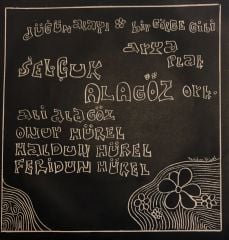 DÜĞÜN ALAYI * BİR GÖLGE GİBİ
ARYA
PLAK
SELÇUK
ALAGÖZ ORK.
ALİ ALAGÖZ
ONUR HÜREL
HALDUN HÜREL
FERİDUN HÜREL